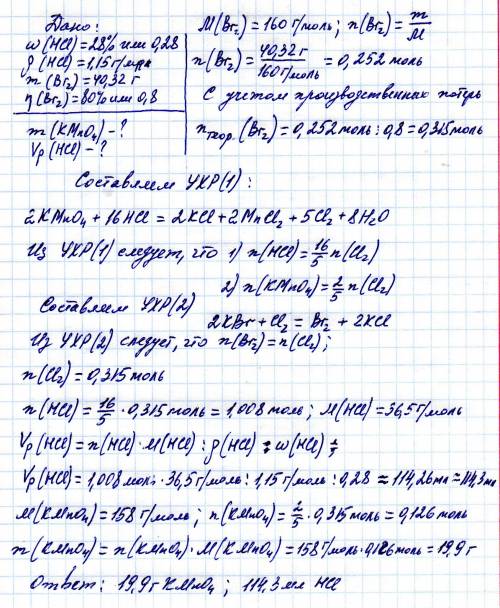 Дано:
ω(HCl)=28% или 0,28
ρ(HCl)=1,15г/мл
m(Br₂)=40,32 г
η(Br₂)=80% или 0,8
m(KMnO₄)-?
Vр(HCl)-?
M(Br₂)=160 г/моль; n(Br₂)=m/M
n(Br₂)=40,32 г/160 г/моль = 0,252 моль
С учетом производственных потерь
nтеор.(Br₂)=0,252моль:0,8=0,315моль
Составляем УХР(1):
2KMnO₄+16HCl=2KCl+2MnCl₂+5Cl₂+8H₂O
Из УХР(1) следует, что 1) n(HCl)=16/5 n(Cl₂)
2) n(KMnO₄)=2/5 n(Cl₂)
Составляем УХР(2)
2KBr+Cl₂=Br₂+2KCl
Из УХР(2) следует, что n(Br₂)=n(Cl₂);
n(Cl₂)=0,315моль
n(HCl)=16/5·0,315моль=1,008моль; M(HCl)=36,5г/моль
Vр(HCl)=n(HCl)·M(HCl):ρ(HCl):ω(HCl)
Vр(HCl)=1,008моль·36,5г/моль:1,15г/мл:0,28≈114,26мл≈114,3мл
M(KMnO₄)=158г/моль; n(KMnO₄)=2/5·0,315моль=0,126моль
m(KMnO₄)=n(KMnO₄)·M(KMnO₄)=158г/моль·0,126моль=19,9г
Ответ: 19,9г KMnO₄; 114,3мл HCl